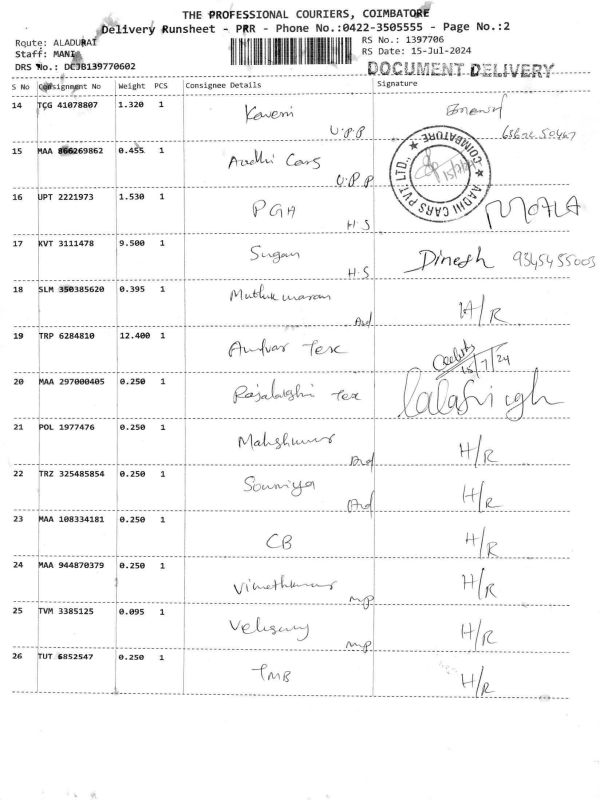 THE PROFESSIONAL COURIERS, COIMBATORE
Delivery Runsheet - PRR - Phone No.:0422-3505555 - Page No.:2
Route: ALADURAI
Staff: MANI
DRS No.: DCJB139770602
RS No.: 1397706
RS Date: 15-Jul-2024
DOCUMENT DELIVERY
S No Consignment No Weight PCS Consignee Details Signature
14 TCG 41078807 1.320 1 Kaveri
U.P.P
15 MAA 866269862 0.455 1 Aadhi Cars
U.P.P
AADHI CARS PVT. LTD., ★ COIMBATORE ★
16 UPT 2221973 1.530 1 PGA
H.S
17 KVT 3111478 9.500 1 Sugan Dinesh 9345455003
H.S
18 SLM 350385620 0.395 1 Muthukumaran H/R
19 TRP 6284810 12.400 1 Tex
15/7/24
20 MAA 297000405 0.250 1 Rajalakshmi Tex
21 POL 1977476 0.250 1 H/R
22 TRZ 325485854 0.250 1 Soumiya H/R
23 MAA 108334181 0.250 1 CB H/R
24 MAA 944870379 0.250 1 Vinothkumar H/R
MP
25 TVM 3385125 0.095 1 H/R
MP
26 TUT 6852547 0.250 1 TMB H/R